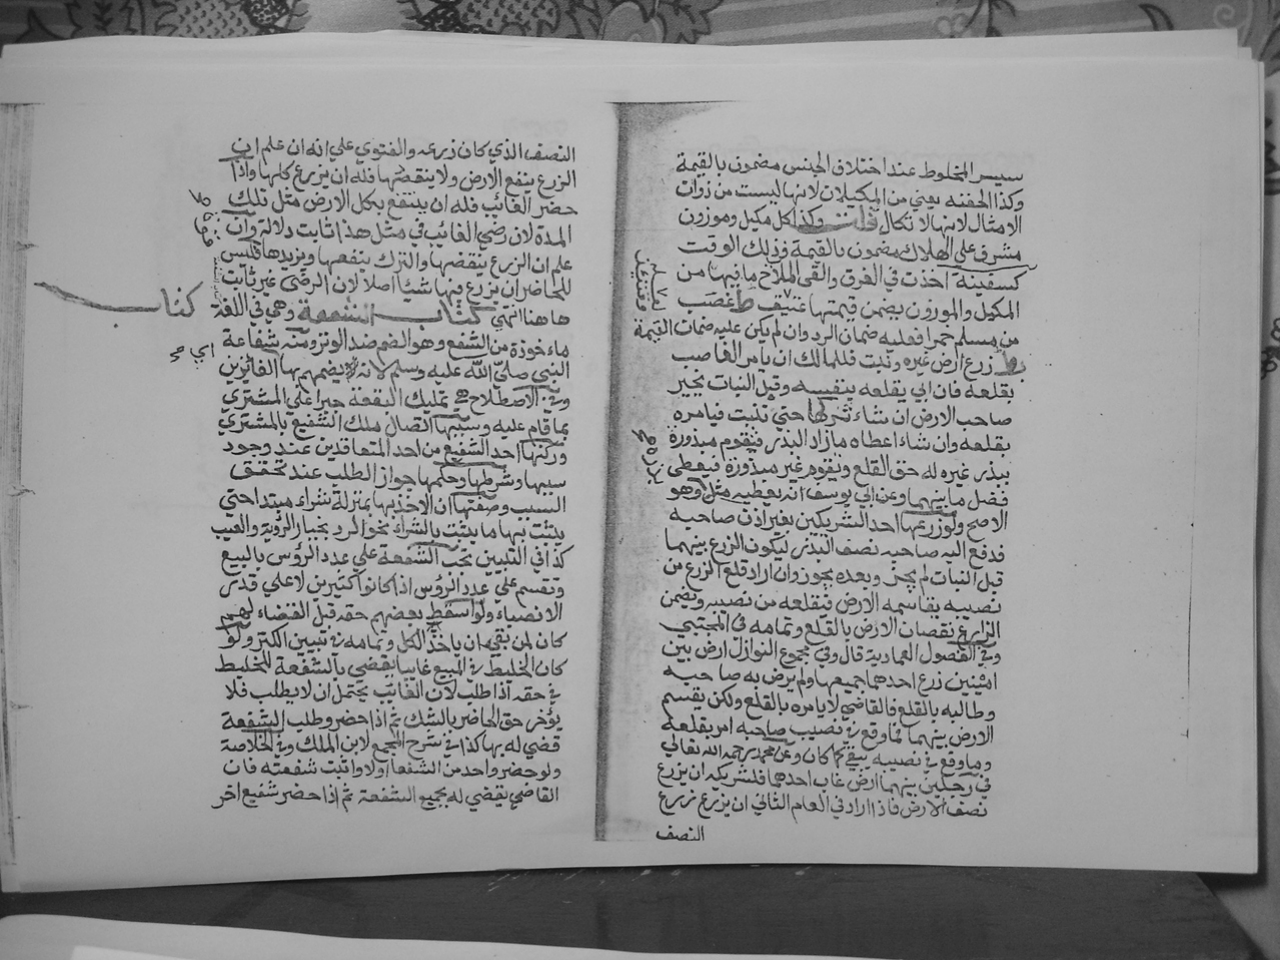 سيسر المخلوط عند اختلاف الجنس مضمون بالقيمة
وكذا الحفنه يعني من المكيلات لانها ليست من ذوات
الامثال لانها لا تكال قلت وكذا كل مكيل وموزون
مشرف على الهلاك مضمون بالقيمة في ذلك الوقت
كسفينة اخذت في الغرق والقى الملاح ما فيها من
المكيل والموزون يضمن قيمتها غصب
من مسلم خمرا فعليه ضمان الرد وان لم يكن عليه ضمان القيمة
زرع ارض غيره ونبت فللمالك ان يامر الغاصب
بقلعه فان ابى يقلعه بنفسه وقبل النبات يخير
صاحب الارض ان شاء تركها حتى تنبت فيامره
بقلعه وان شاء اعطاه ما زاد البذر فيقوم مبذورة
ببذر غيره له حق القلع ويقوم غير مبذورة فيعطى
فضل ما بينهما وعن ابي يوسف انه يعطيه مثل وهو
الاصح ولو زرعها احد الشريكين بغير اذن صاحبه
فدفع اليه صاحبه نصف البذر ليكون الزرع بينهما
قبل النبات لم يجز وبعده يجوز وان اراد قلع الزرع من
نصيبه يقاسمه الارض فيقلعه من نصيبه ويضمن
الزارع نقصان الارض بالقلع وتمامه في المجتبي
وفي الفصول العمادية قال وفي مجموع النوازل ارض بين
اثنين زرع احدهما جميعها ولم يرض به صاحبه
وطالبه بالقلع فالقاضي لا يامره بالقلع ولكن يقسم
الارض بينهما فما وقع في نصيب صاحبه امر بقلعه
وما وقع في نصيبه يبقى كما كان وعن محمد رحمه الله تعالي
في رجلين بينهما ارض غاب احدهما فلشريكه ان يزرع
نصف الارض فاذا اراد في العام الثاني ان يزرع زرع
النصف
النصف الذي كان زرعه والفتوي علي انه ان علم ان
الزرع ينفع الارض ولا ينقصها فله ان يزرع كلها واذا
حضر الغائب فله ان ينتفع بكل الارض مثل تلك
المدة لان رضي الغائب في مثل هذا ثابت دلالة وان
علم ان الزرع ينقصها والترك ينفعها ويزيدها فليس
للحاضر ان يزرع فيها شيئا اصلا لان الرضى غير ثابت
ها هنا انتهي كتاب الشفعة وهي في اللغة
كتاب
ماخوذة من الشفع وهو الضم ضد الوتر ومنه شفاعة
النبي صلى الله عليه وسلم لانه يضمهم بها الفائزين
اي
وفي الاصطلاح تمليك البقعة جبرا علي المشتري
بما قام عليه وسببها اتصال ملك الشفيع بالمشتري
وركنها اخذ الشفيع من احد المتعاقدين عند وجود
سببها وشرطها وحكمها جواز الطلب عند تحقق
السبب وصفتها ان الاخذ بها بمنزلة شراء مبتدا حتي
يثبت بها ما يثبت بالشراء نحو الرد بخيار الرؤية والعيب
كذا في التبيين تجب الشفعة علي عدد الرؤس بالبيع
وتقسم علي عدد الرؤس اذا كانوا كثيرين لا علي قدر
الانصباء ولو اسقط بعضهم حقه قبل القضاء لهم
كان لمن بقي ان ياخذ الكل وتمامه في تبيين الكنز ولو
كان الخليط في المبيع غايبا يقضي بالشفعة للخليط
في حقه اذا طلب لان الغائب يحتمل ان لا يطلب فلا
يؤخر حق الحاضر بالشك ثم اذا حضر وطلب الشفعة
قضي له بها كذا في شرح المجمع لابن الملك وفي الخلاصة
ولو حضر واحد من الشفعا اولا واثبت شفعته فان
القاضي يقضي له بجميع الشفعة ثم اذا حضر شفيع اخر